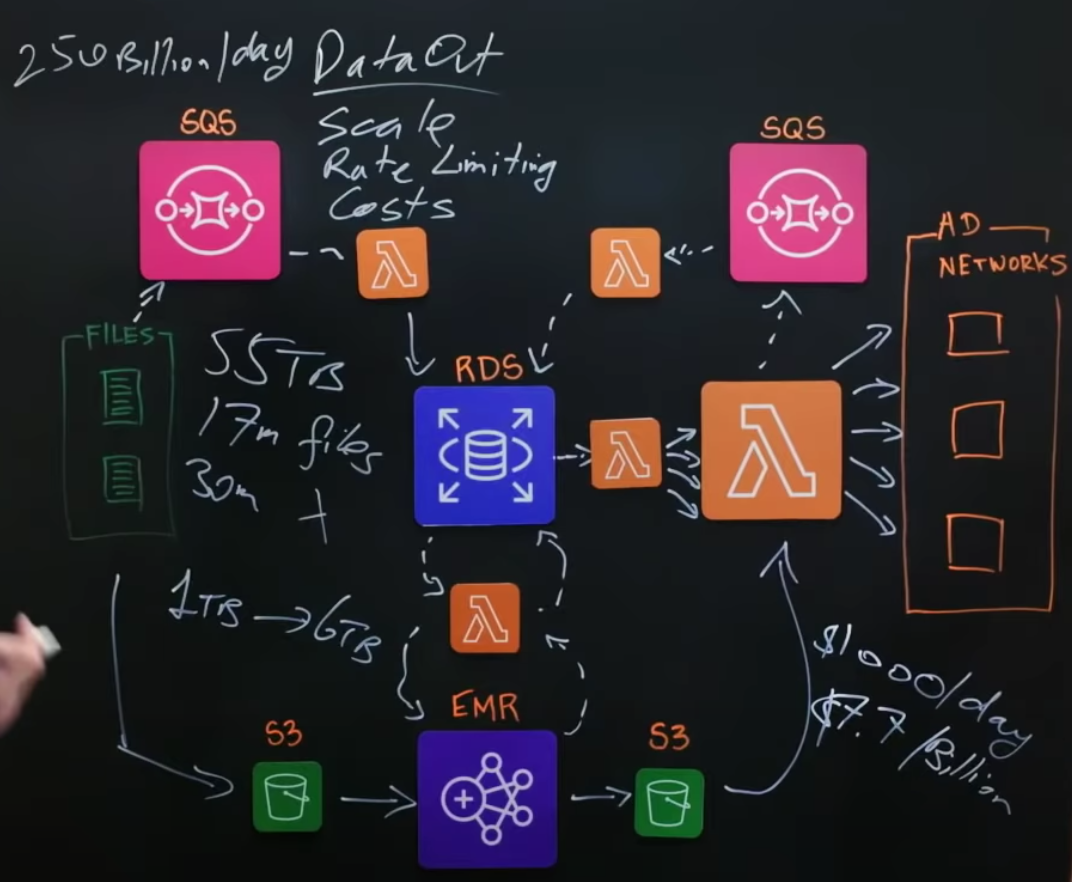 250 Billion/day Data Out
SQS
Scale
Rate Limiting
Costs
SQS
AD
NETWORKS
FILES
55TB
17m files
30m +
RDS
1TB → 6TB
EMR
S3
S3
$1000/day
$7.7/Billion